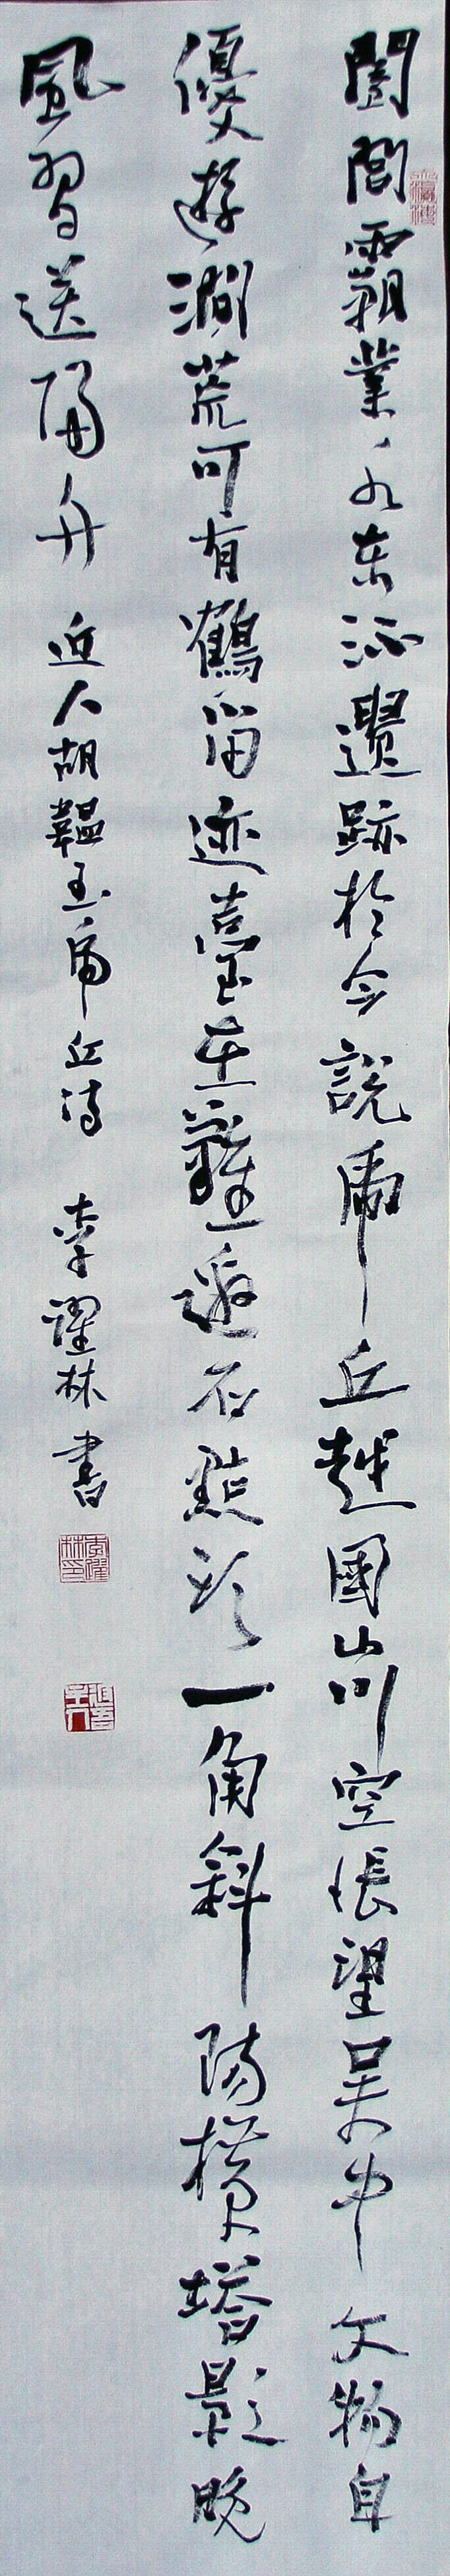 闔閭霸業水東流遺跡於今說虎丘越國山川空悵望吳中文物自
優遊澗荒可有鶴留迹臺在難邀石點頭一角斜陽橫塔影晚
風習習送歸舟 近人胡韞玉虎丘詩 李躍林書
李躍林印